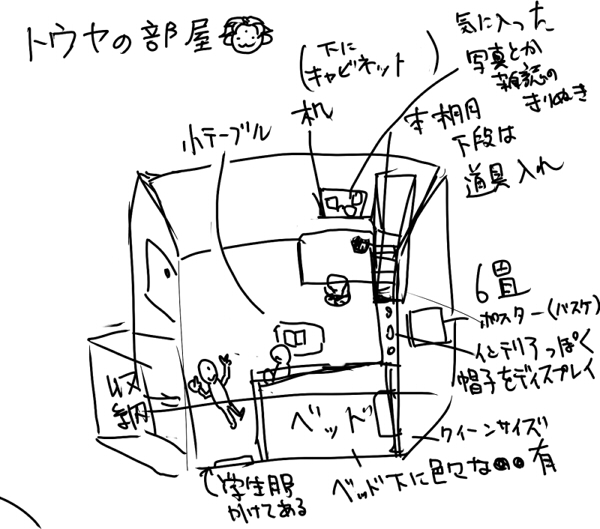 トウヤの部屋
(下に
キャビネット)
机
小テーブル
気に入った
写真とか
雑誌の
きりぬき
本棚
下段は
道具入れ
6畳
ポスター(バスケ)
インテリアっぽく
帽子をディスプレイ
収納
ベッド
クィーンサイズ
ベッド下に色々な●●有
学生服
かけてある